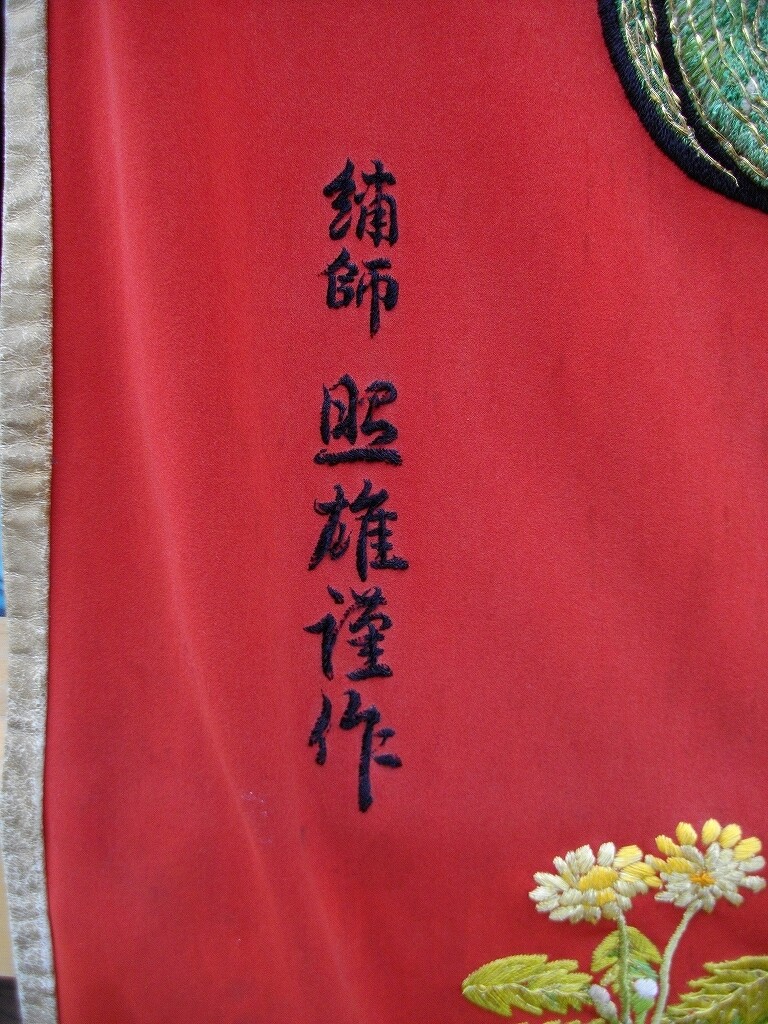 繍師 照雄謹作